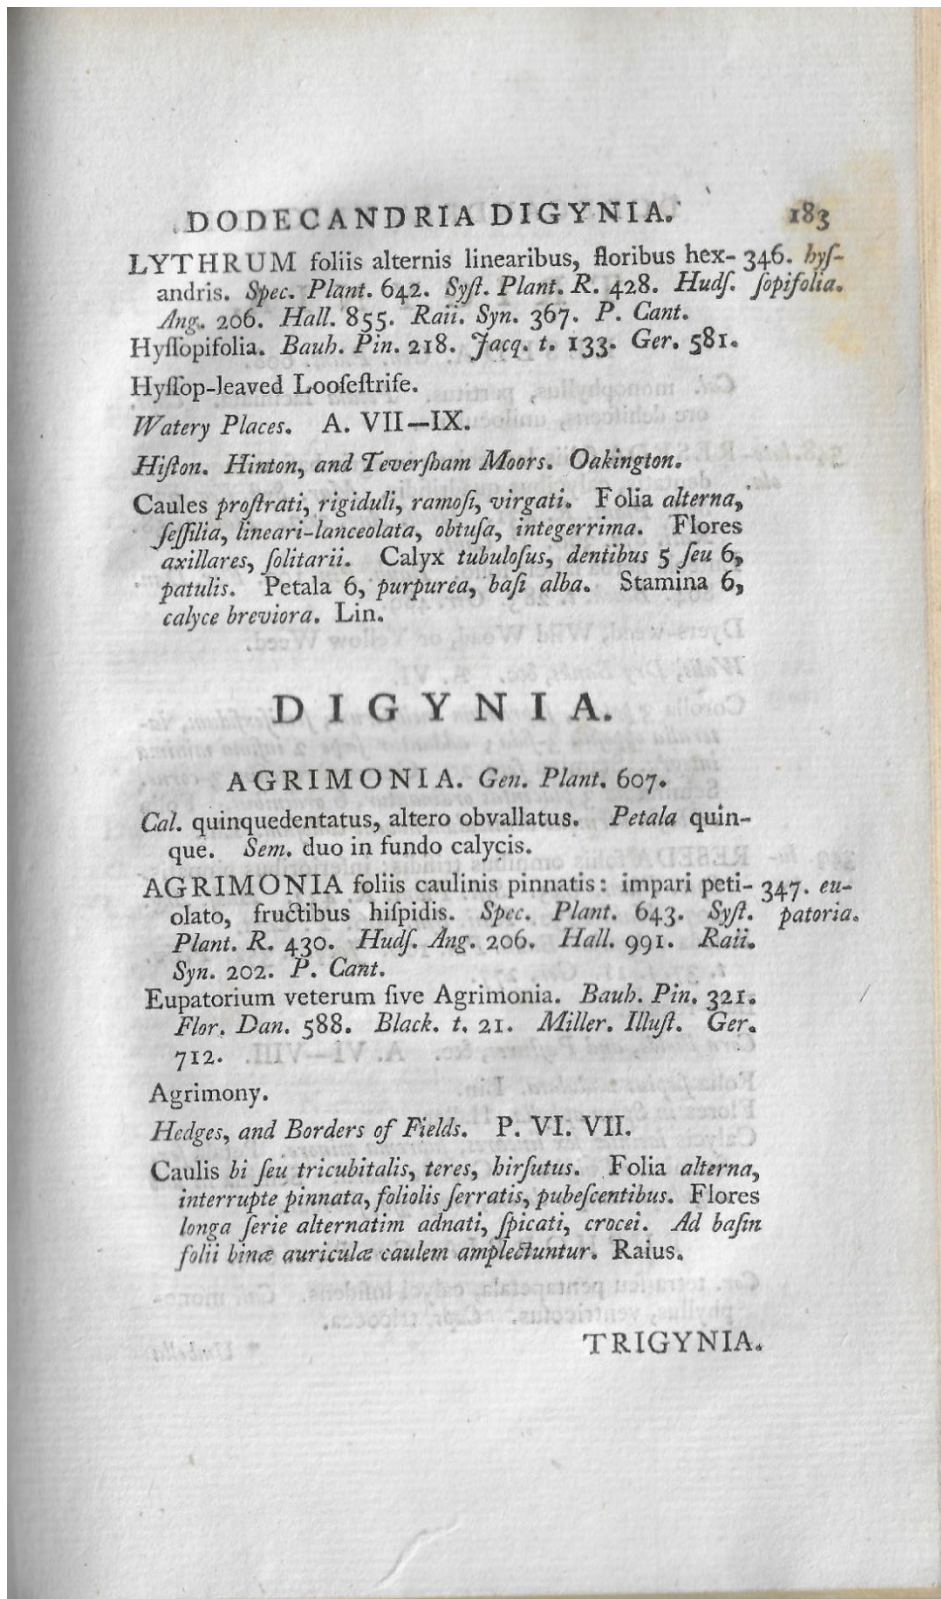 DODECANDRIA DIGYNIA. 183
LYTHRUM foliis alternis linearibus, floribus hex- 346. hyſ-
andris. Spec. Plant. 642. Syſt. Plant. R. 428. Hudſ. ſopifolia.
Ang. 206. Hall. 855. Raii. Syn. 367. P. Cant.
Hyſſopifolia. Bauh. Pin. 218. Jacq. t. 133. Ger. 581.
Hyſſop-leaved Looſeſtrife.
Watery Places. A. VII—IX.
Hiſton. Hinton, and Teverſham Moors. Oakington.
Caules proſtrati, rigiduli, ramoſi, virgati. Folia alterna,
ſeſſilia, lineari-lanceolata, obtuſa, integerrima. Flores
axillares, ſolitarii. Calyx tubuloſus, dentibus 5 ſeu 6,
patulis. Petala 6, purpurea, baſi alba. Stamina 6,
calyce breviora. Lin.
DIGYNIA.
AGRIMONIA. Gen. Plant. 607.
Cal. quinquedentatus, altero obvallatus. Petala quin-
que. Sem. duo in fundo calycis.
AGRIMONIA foliis caulinis pinnatis: impari peti- 347. eu-
olato, fructibus hiſpidis. Spec. Plant. 643. Syſt. patoria.
Plant. R. 430. Hudſ. Ang. 206. Hall. 991. Raii.
Syn. 202. P. Cant.
Eupatorium veterum ſive Agrimonia. Bauh. Pin. 321.
Flor. Dan. 588. Black. t. 21. Miller. Illuſt. Ger.
712.
Agrimony.
Hedges, and Borders of Fields. P. VI. VII.
Caulis bi ſeu tricubitalis, teres, hirſutus. Folia alterna,
interrupte pinnata, foliolis ſerratis, pubeſcentibus. Flores
longa ſerie alternatim adnati, ſpicati, crocei. Ad baſin
folii binæ auriculæ caulem amplectuntur. Raius.
TRIGYNIA.